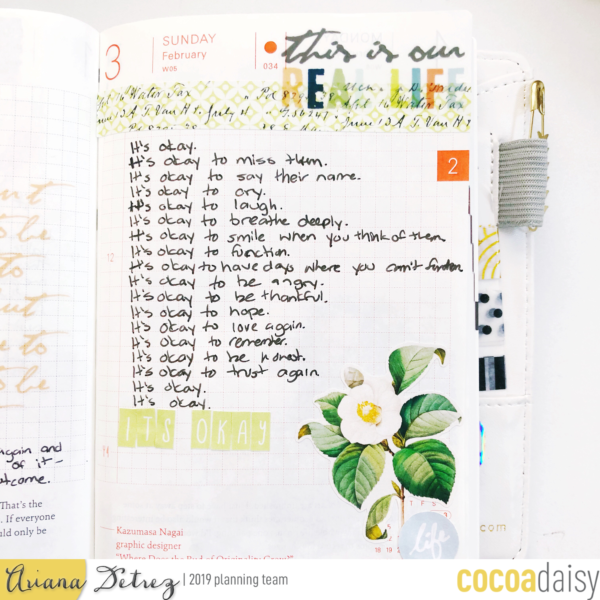 3
SUNDAY
February
W05
034
this is our
REAL LIFE
Water Tax
A.T. Van H
July 11
June 13 A.T. Van H
2
It's okay.
It's okay to miss them.
It's okay to say their name.
It's okay to cry.
It's okay to laugh.
It's okay to breathe deeply.
It's okay to smile when you think of them.
It's okay to function.
It's okay to have days where you can't function
It's okay to be angry.
It's okay to be thankful.
It's okay to hope.
It's okay to love again.
It's okay to remember.
It's okay to be honest.
It's okay to trust again
It's okay.
It's okay.
ITS OKAY
12
14
again and
of it-
outcome.
That's the
. If everyone
uld only be
Kazumasa Nagai
graphic designer
life
.com
Ariana Detrez | 2019 planning team
cocoadaisy